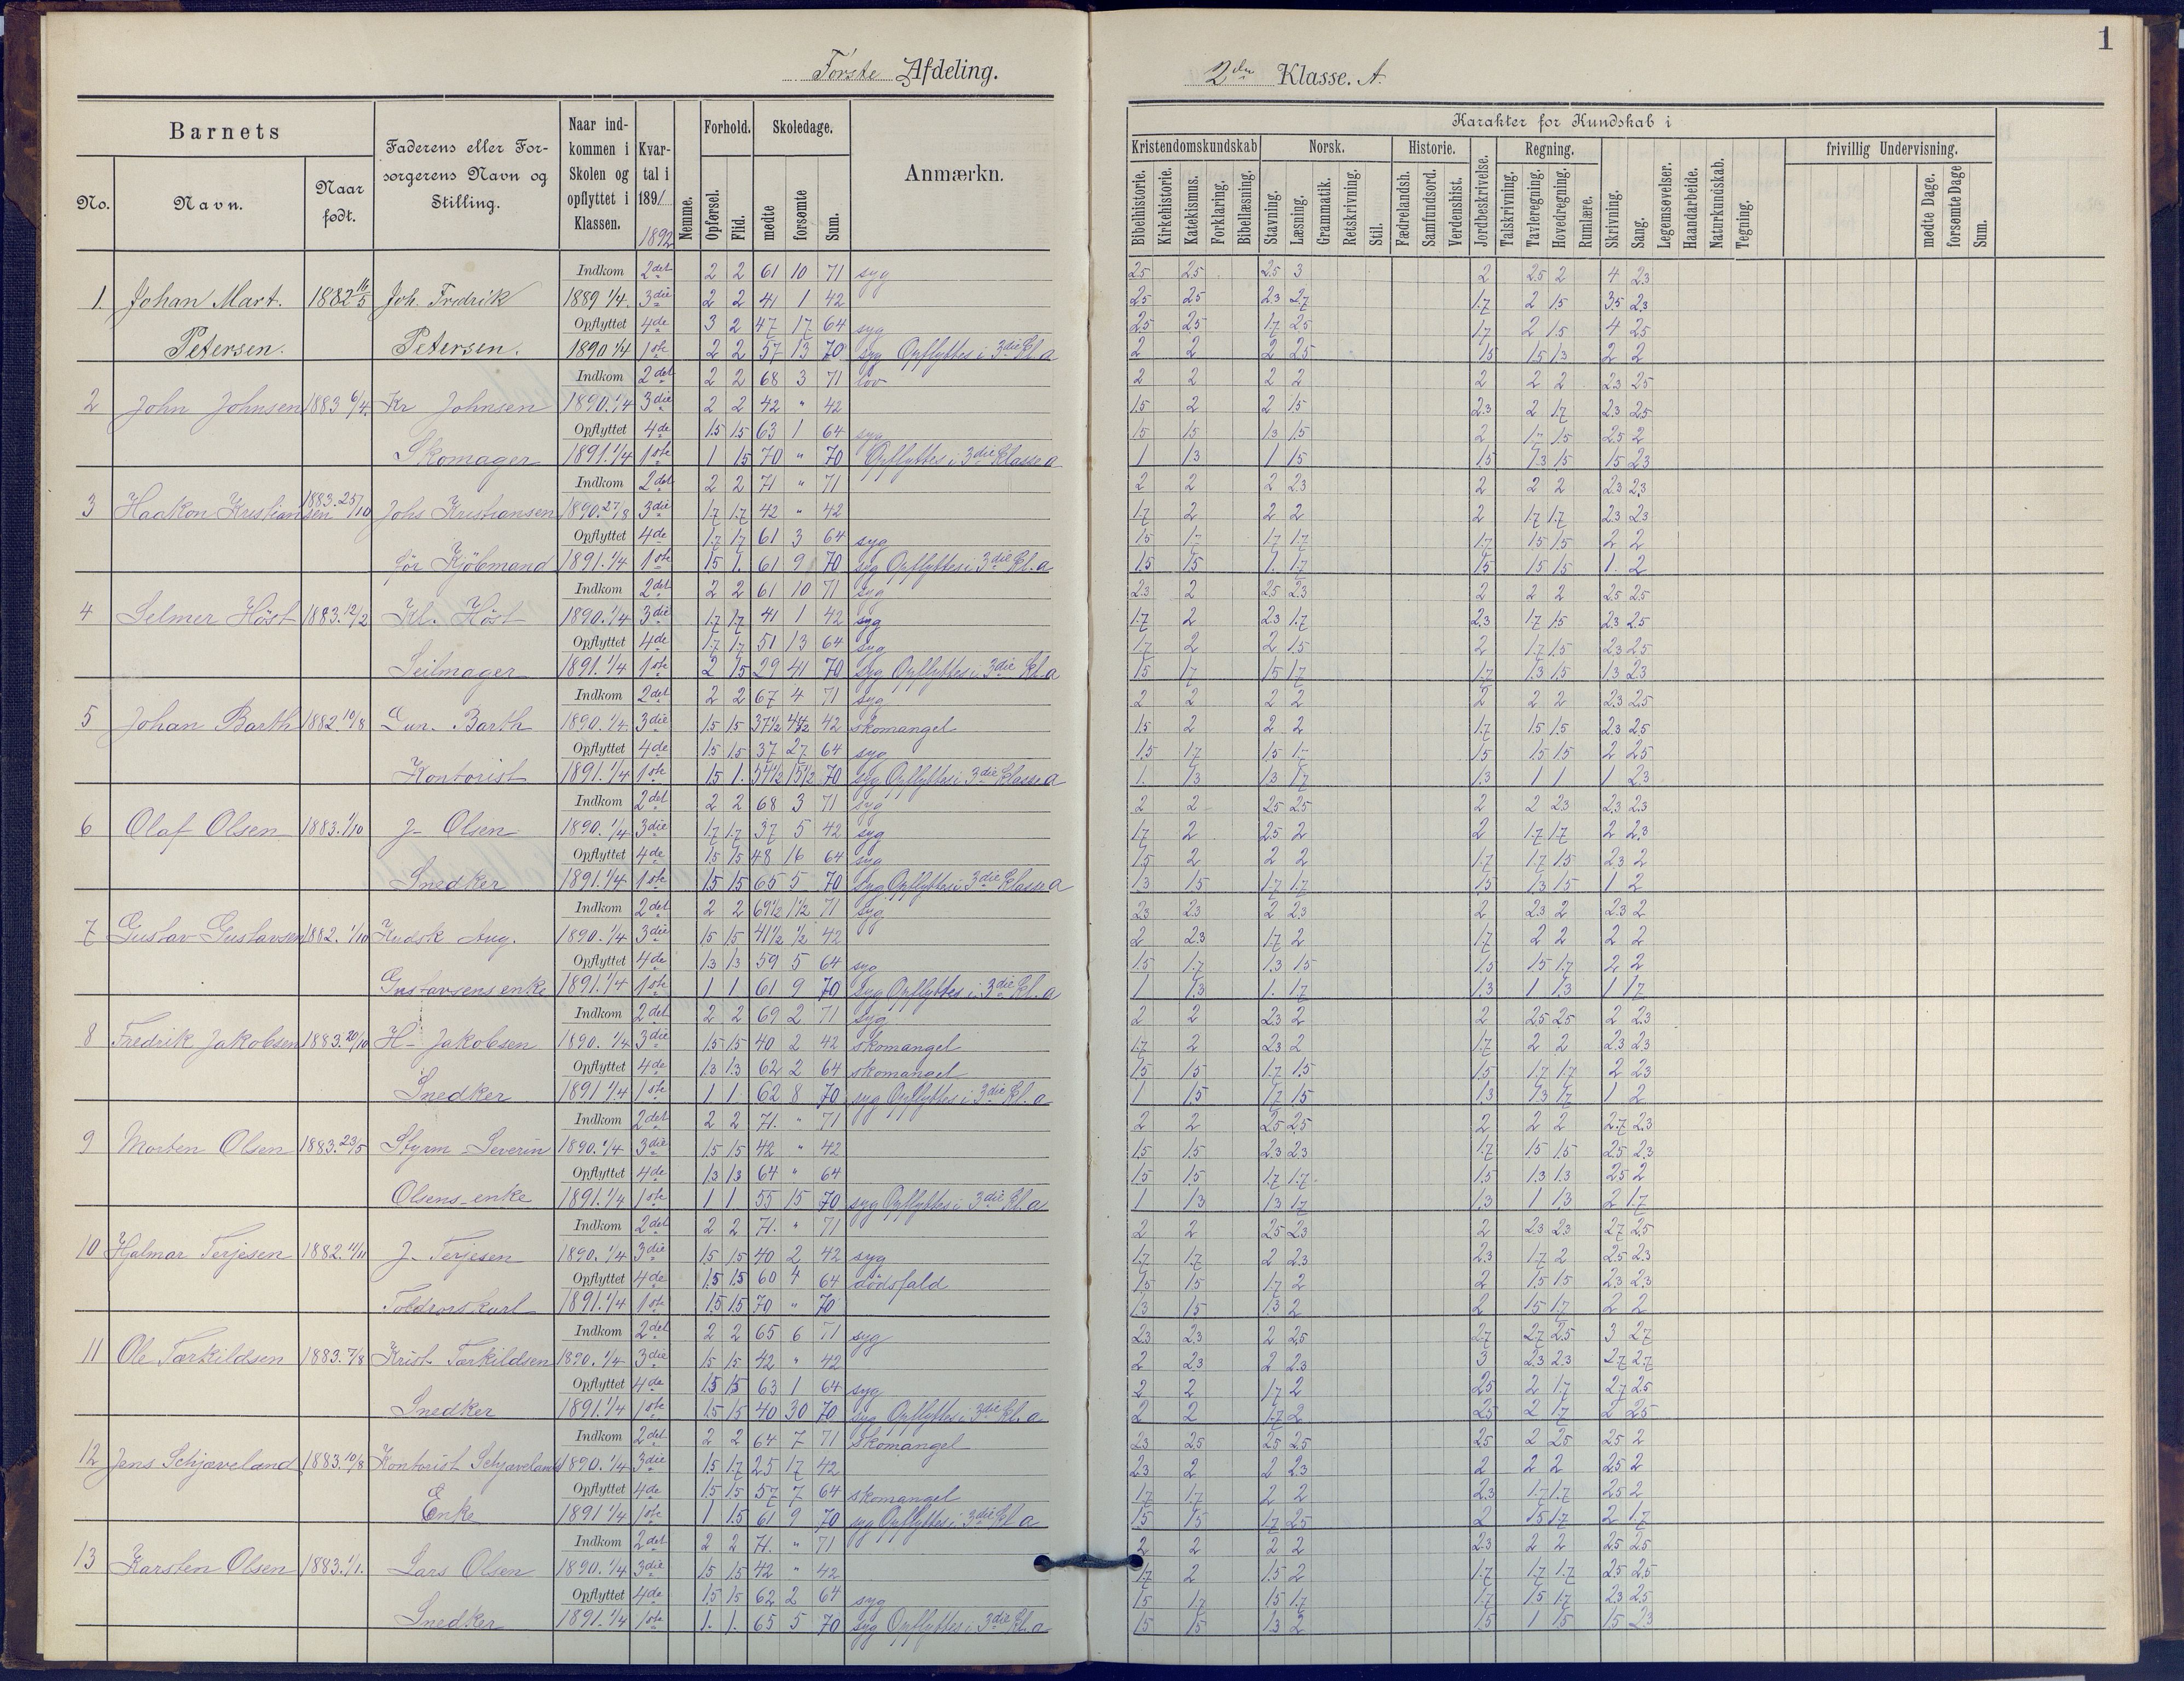 Første Afdeling.
2den Klasse. A.
1
Barnets
No.
Navn.
Naar født.
Faderens eller Forsørgerens Navn og Stilling.
Naar indkommen i Skolen og opflyttet i Klassen.
Kvartal i 1891/1892
Nemme.
Forhold.
Opførsel. Flid.
Skoledage.
mødte forsømte Sum.
Anmærkn.
Karakter for Kundskab i
Kristendomskundskab
Bibelhistorie. Kirkehistorie. Katekismus. Forklaring. Bibellæsning.
Norsk.
Stavning. Læsning. Grammatik. Retskrivning. Stil.
Historie.
Fædrelandsh. Samfundsord. Verdenshist.
Jordbeskrivelse.
Regning.
Talskrivning. Tavleregning. Hovedregning. Rumlære.
Skrivning. Sang. Legemsøvelser. Haandarbeide. Naturkundskab. Tegning.
frivillig Undervisning.
mødte Dage. forsømte Dage Sum.
Indkom 2det 2 2 61 10 71 syg 25 25 25 3 2 25 2 4 23
1. Johan Mart. 1882 16/5 Joh. Fredrik 1889 1/4. 3die 2 2 41 1 42 25 25 23 27 17 2 15 35 23
Opflyttet 4de 3 2 47 17 64 syg 25 25 17 25 17 2 15 4 25
Petersen. Petersen. 1890 1/4 1ste 2 2 57 13 70 syg Opflyttes i 3die Kl. a 2 2 2 25 15 15 13 2 2
Indkom 2det 2 2 68 3 71 lov 2 2 2 2 2 2 2 23 25
2 John Johnsen 1883 6/4. Kr Johnsen 1890. 1/4 3die 2 2 42 " 42 15 2 2 15 23 2 17 23 25
Opflyttet 4de 15 15 63 1 64 syg 15 15 13 15 2 17 15 25 2
Skomager 1891. 1/4 1ste 1 15 70 " 70 Opflyttes i 3die Klasse a 1 13 1 15 15 13 15 15 23
Indkom 2det 2 2 71 " 71 2 2 2 23 2 2 2 23 23
3 Haakon Kristiansen 1883. 25/10 Johs Kristiansen 1890. 27/8 3die 17 17 42 " 42 17 2 2 2 2 17 17 23 23
Opflyttet 4de 17 17 61 3 64 syg 15 17 17 17 17 15 15 2 2
før Kjöbmand 1891. 1/4 1ste 15 1. 61 9 70 syg Opflyttes i 3die Kl. a 15 15 1. 17 15 15 15 1. 2
Indkom 2det 2 2 61 10 71 syg 23 2 25 23 2 2 2 25 25
4 Selmer Höst 1883. 12/2 Kl. Höst 1890. 1/4 3die 17 17 41 1 42 syg 17 2 23 17 23 17 15 23 25
Opflyttet 4de 17 17 51 13 64 syg 17 2 2 15 2 17 15 23 25
Seilmager 1891. 1/4 1ste 2 15 29 41 70 syg Opflyttes i 3die Kl. a 15 17 15 17 17 13 15 13 23
Indkom 2det 2 2 67 4 71 syg 2 2 2 2 2 2 2 23 25
5 Johan Barth 1882. 10/8 Gun. Barth 1890. 1/4. 3die 15 15 37 1/2 4 1/2 42 skomangel 15 2 2 2 17 15 15 23 25
Opflyttet 4de 15 15 37 27 64 syg 15 17 15 17 15 15 15 2 25
Kontorist 1891. 1/4 1ste 15 1. 54 1/2 15 1/2 70 syg Opflyttes i 3die Klasse a 1. 13 13 17 13 1 1 1 23
Indkom 2det 2 2 68 3 71 syg 2 2 25 25 2 2 23 23 23
6 Olaf Olsen 1883. 1/10 J- Olsen 1890. 1/4 3die 17 17 37 5 42 syg 17 2 25 2 2 17 17 2 23
Opflyttet 4de 15 15 48 16 64 syg 15 2 2 2 17 17 15 23 2
Snedker 1891. 1/4 1ste 15 15 65 5 70 syg Opflyttes i 3die Klasse a 13 15 17 17 15 13 15 1 2
Indkom 2det 2 2 69 1/2 1 1/2 71 syg 23 23 2 23 2 23 2 23 2
7 Gustav Gustavsen 1882. 1/10 Kudsk Aug. 1890. 1/4 3die 15 15 41 1/2 1/2 42 2 23 17 2 17 2 2 2 2
Opflyttet 4de 13 13 59 5 64 syg 15 17 13 15 15 15 17 2 2
Gustavsens enke 1891. 1/4 1ste 1 1 61 9 70 syg Opflyttes i 3die Kl. a 1 13 1. 17 13 1 13 1 17
Indkom 2det 2 2 69 2 71 syg 2 2 23 2 2 25 25 2 23
8 Fredrik Jakobsen 1883. 20/10 H- Jakobsen 1890. 1/4 3die 15 15 40 2 42 skomangel 17 2 23 2 17 2 2 23 23
Opflyttet 4de 13 13 62 2 64 skomangel 15 15 17 15 15 17 17 2 23
Snedker 1891 1/4 1ste 1 1 62 8 70 syg Opflyttes i 3die Kl. a 1 15 17 15 13 13 17 1 2
Indkom 2det 2 2 71. " 71 2 2 25 25 2 2 2 27 23
9 Morten Olsen 1883. 23/5 Styrm Severin 1890. 1/4 3die 15 15 42 " 42 15 15 23 23 17 15 15 25 23
Opflyttet 4de 13 13 64 " 64 15 15 17 17 15 13 13 25 2
Olsens enke 1891. 1/4 1ste 1 1. 55 15 70 syg Opflyttes i 3die Kl. a 1 13 13 17 13 1 13 2 17
Indkom 2det 2 2 71. " 71 2 2 25 23 2 23 23 27 25
10 Hjalmar Terjesen 1882. 11/11 J. Terjesen 1890. 1/4 3die 15 15 40 2 42 syg 17 17 2 23 23 17 2 25 23
Opflyttet 4de 15 15 60 4 64 dödsfald 15 15 17 2 2 15 15 23 23
1891. 1/4 1ste 15 15 70 " 70 13 15 13 2 2 15 17 2 2
Indkom 2det 2 2 65 6 71 syg 23 23 2 25 27 27 25 3 27
11 Ole Tørkildsen 1883. 7/8 Krist. Tørkildsen 1890. 1/4 3die 15 15 42 " 42 2 23 2 23 3 23 23 27 27
Opflyttet 4de 15 15 63 1 64 syg 2 2 17 2 25 2 17 27 25
Snedker 1891. 1/4 1ste 15 15 40 30 70 syg Opflyttes i 3die Kl. a. 2 2 17 2 25 2 17 2 25
Indkom 2det 2 2 64 7 71 skomangel 23 25 25 25 25 2 25 25 2
12 Jens Schjæveland 1883. 10/8 Kontorist Schjæveland 1890. 1/4 3die 15 17 25 17 42 23 2 2 23 2 2 2 25 2
Opflyttet 4de 15 15 57 7 64 skomangel 17 17 2 2 23 17 17 25 2
Enke 1891 1/4 1ste 1 15 61 9 70 syg Opflyttes i 3die Kl a 15 15 17 25 2 15 17 2 17
Indkom 2det 2 2 71. " 71 2 2 2 2 23 2 2 25 25
13 Karsten Olsen 1883. 1/1. Lars Olsen 1890. 1/4 3die 15 15 42 " 42 17 2 15 2 17 17 17 25 25
Opflyttet 4de 15 15 62 2 64 syg 15 17 15 17 17 15 17 23 25
Snedker 1891. 1/4 1ste 1. 1. 65 5 70 syg Opflyttes i 3die Kl. a 15 15 13 2 15 1 15 15 23